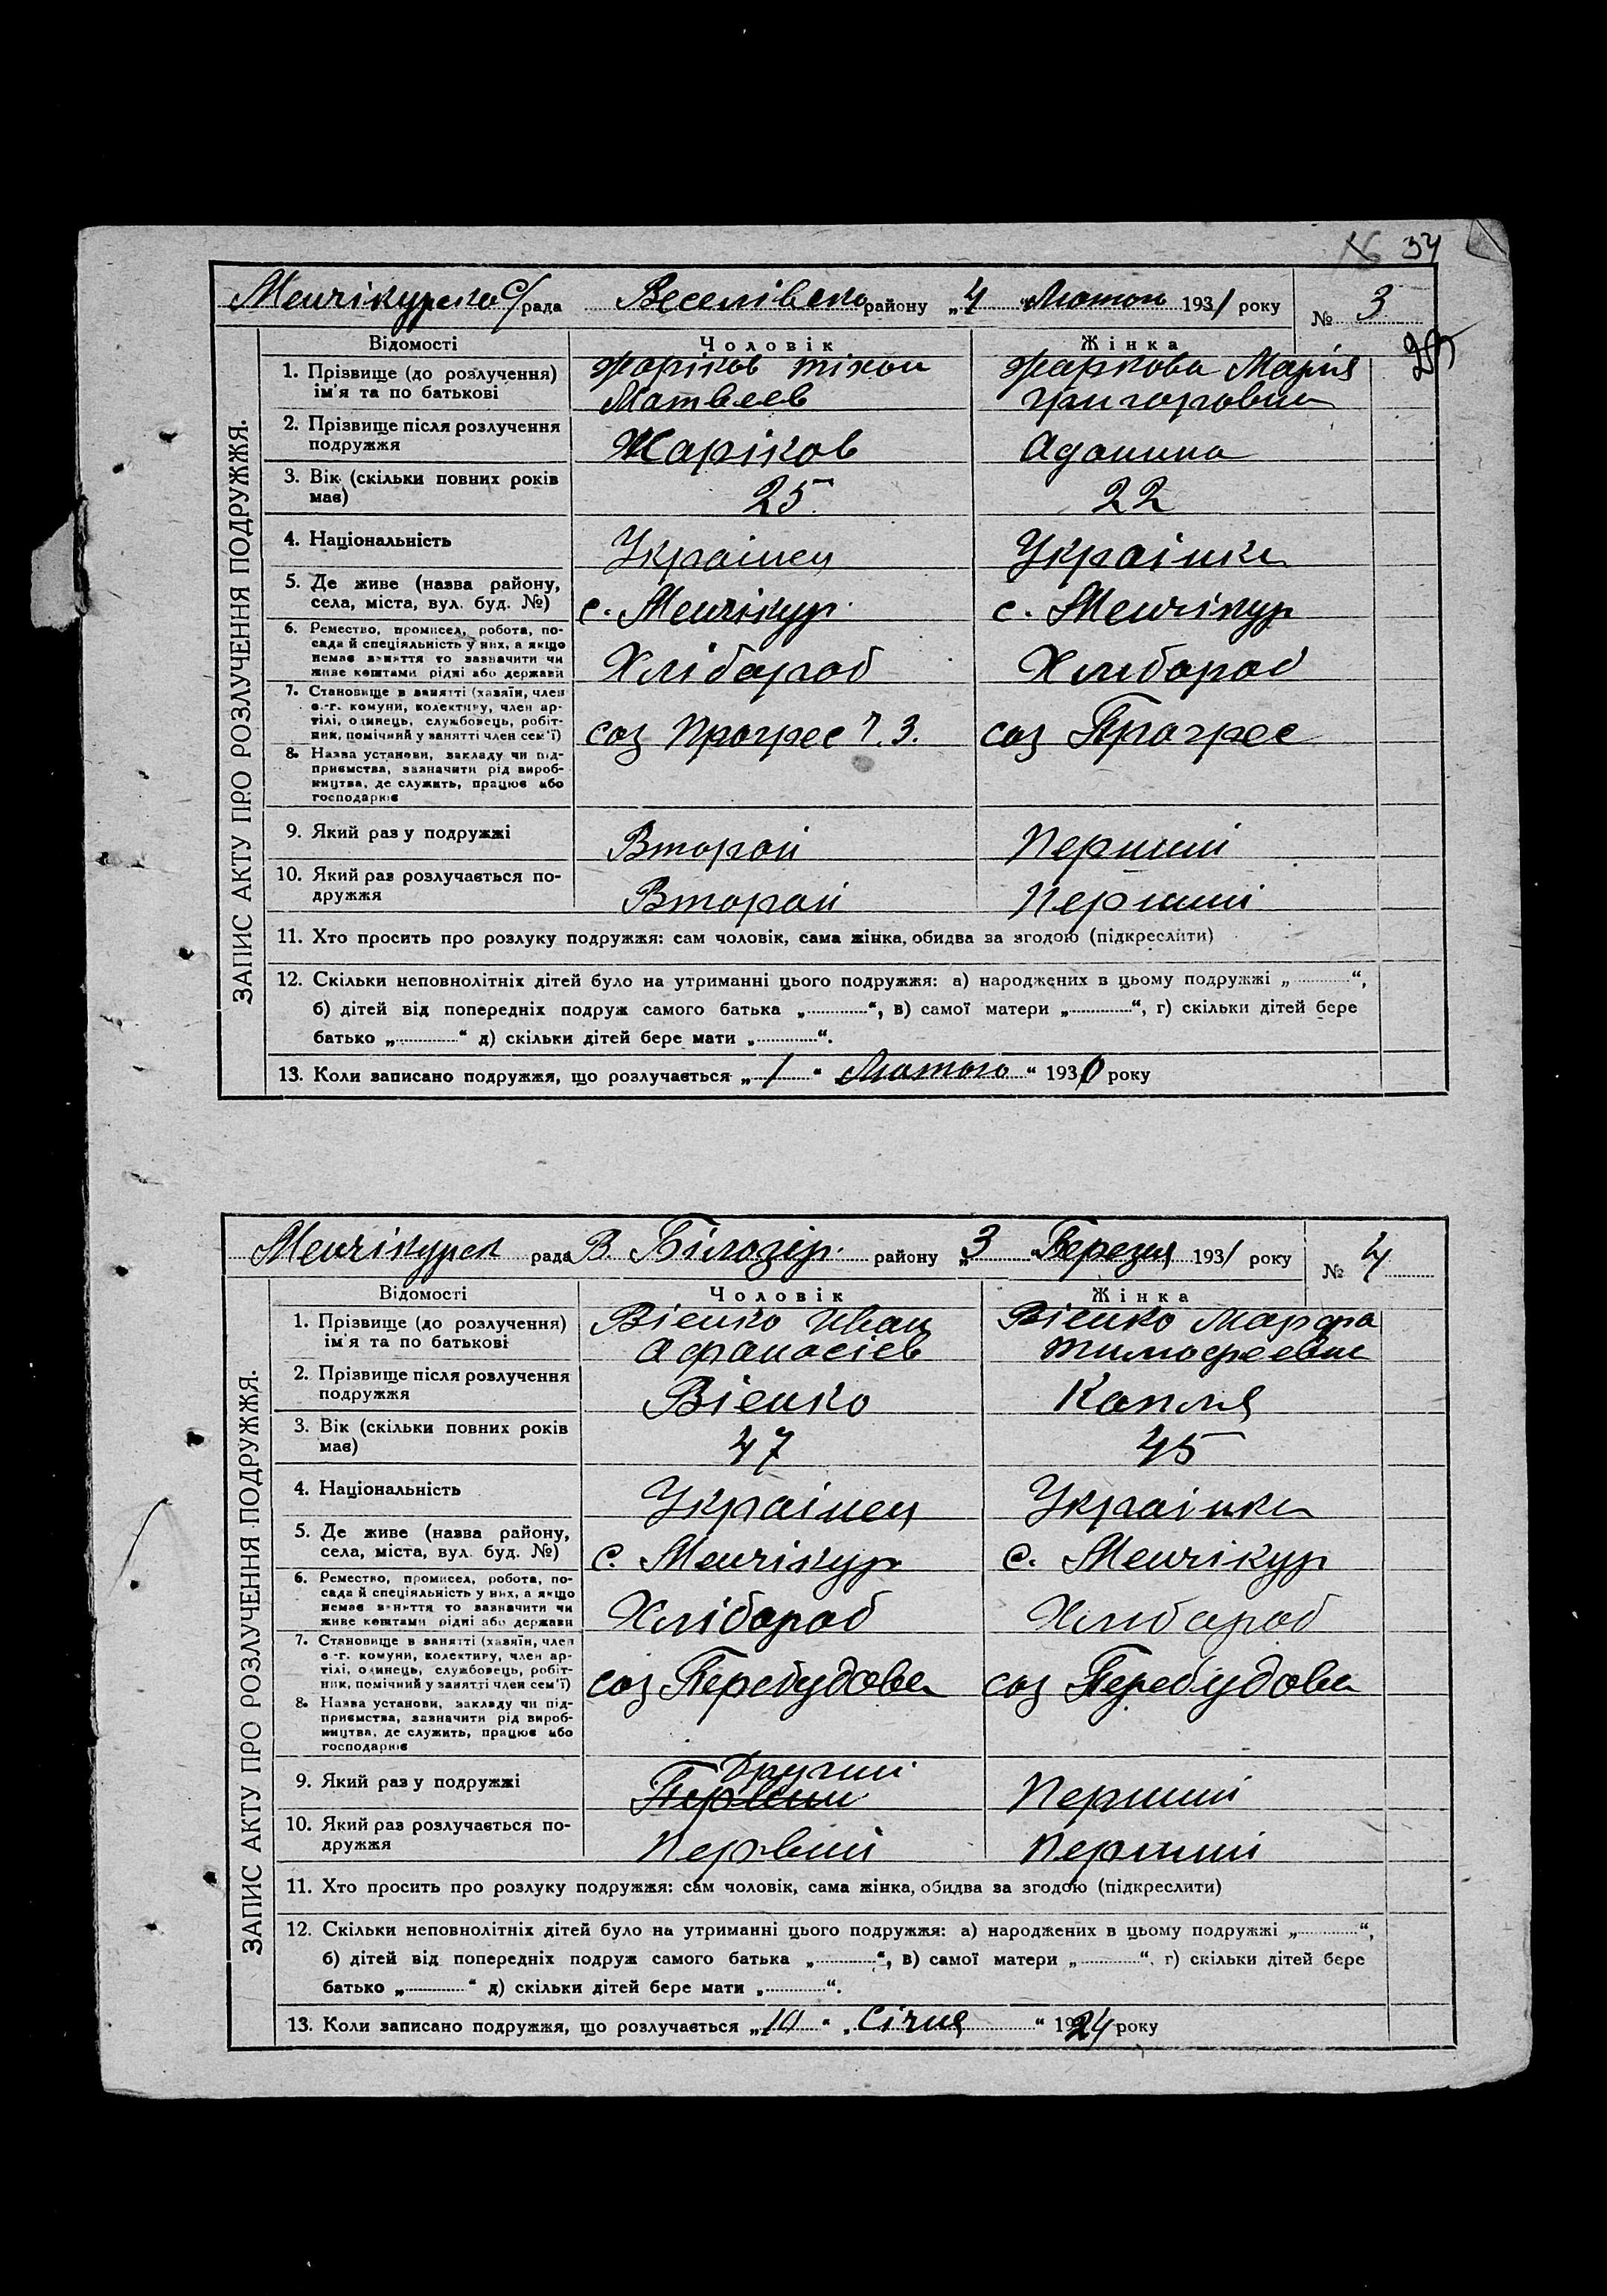 34
Менчікурска с/рада Веселівсько району „4 “ Лютого 1931 року № 3
ЗАПИС АКТУ ПРО РОЗЛУЧЕННЯ ПОДРУЖЖЯ.
Відомості Чоловік Жінка
1. Прізвище (до розлучення) Жаріков Тіхон Жаркова Марія
ім'я та по батькові Матвеев Григоровна
2. Прізвище після розлучення
подружжя Жаріков Адонина
3. Вік (скільки повних років
має) 25 22
4. Національність Украінец Украінка
5. Де живе (назва району,
села, міста, вул. буд. №) с. Менчікур с. Менчікур
6. Ремество, промисел, робота, по-
сада й спеціяльність у них, а якщо
немає заняття то зазначити чи
живе коштами рідні або держави Хлібороб Хлибороб
7. Становище в занятті (хазяїн, член
с.-г. комуни, колективу, член ар-
тілі, одинець, службовець, робіт-
ник, помічний у занятті член сем'ї) соз Прогрес Ч.З. соз Прогрес
8. Назва установи, закладу чи під-
приємства, зазначити рід вироб-
ництва, де служить, працює або
господарює
9. Який раз у подружжі Второй Перший
10. Який раз розлучається по-
дружжя Второй Перший
11. Хто просить про розлуку подружжя: сам чоловік, сама жінка, обидва за згодою (підкреслити)
12. Скільки неповнолітніх дітей було на утриманні цього подружжя: а) народжених в цьому подружжі „ “,
б) дітей від попередніх подруж самого батька „ “, в) самої матери „ “, г) скільки дітей бере
батько „ “ д) скільки дітей бере мати „ “.
13. Коли записано подружжя, що розлучається „ 1 “ Лютого “ 1930 року
Менчікурск рада В. Білозір. району „3 Березня 1931 року № 4
ЗАПИС АКТУ ПРО РОЗЛУЧЕННЯ ПОДРУЖЖЯ.
Відомості Чоловік Жінка
1. Прізвище (до розлучення) Вієнко Иван Вієнко Марфа
ім'я та по батькові Афанасіев Тимофеевна
2. Прізвище після розлучення
подружжя Вієнко Капля
3. Вік (скільки повних років
має) 47 45
4. Національність Украінец Украінка
5. Де живе (назва району,
села, міста, вул. буд. №) с. Менчікур с. Менчікур
6. Ремество, промисел, робота, по-
сада й спеціяльність у них, а якщо
немає заняття то зазначити чи
живе коштами рідні або держави Хлібороб Хлибороб
7. Становище в занятті (хазяїн, член
с.-г. комуни, колективу, член ар-
тілі, одинець, службовець, робіт-
ник, помічний у занятті член сем'ї) соз Перебудова соз Перебудова
8. Назва установи, закладу чи під-
приємства, зазначити рід вироб-
ництва, де служить, працює або
господарює
Другий
9. Який раз у подружжі Первий Перший
10. Який раз розлучається по-
дружжя Первий Перший
11. Хто просить про розлуку подружжя: сам чоловік, сама жінка, обидва за згодою (підкреслити)
12. Скільки неповнолітніх дітей було на утриманні цього подружжя: а) народжених в цьому подружжі „ “,
б) дітей від попередніх подруж самого батька „ “, в) самої матери „ “. г) скільки дітей бере
батько „ “ д) скільки дітей бере мати „ “.
13. Коли записано подружжя, що розлучається „10 “ „ Січня “ 1924 року